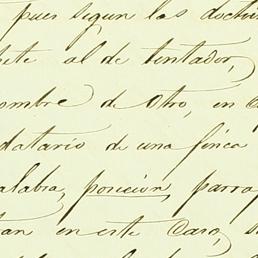 pues segun las doctri
ete al de tentador,
ombre de otro, en
datario de una finca
alabra, posesion, parra
tan en este Caso, s